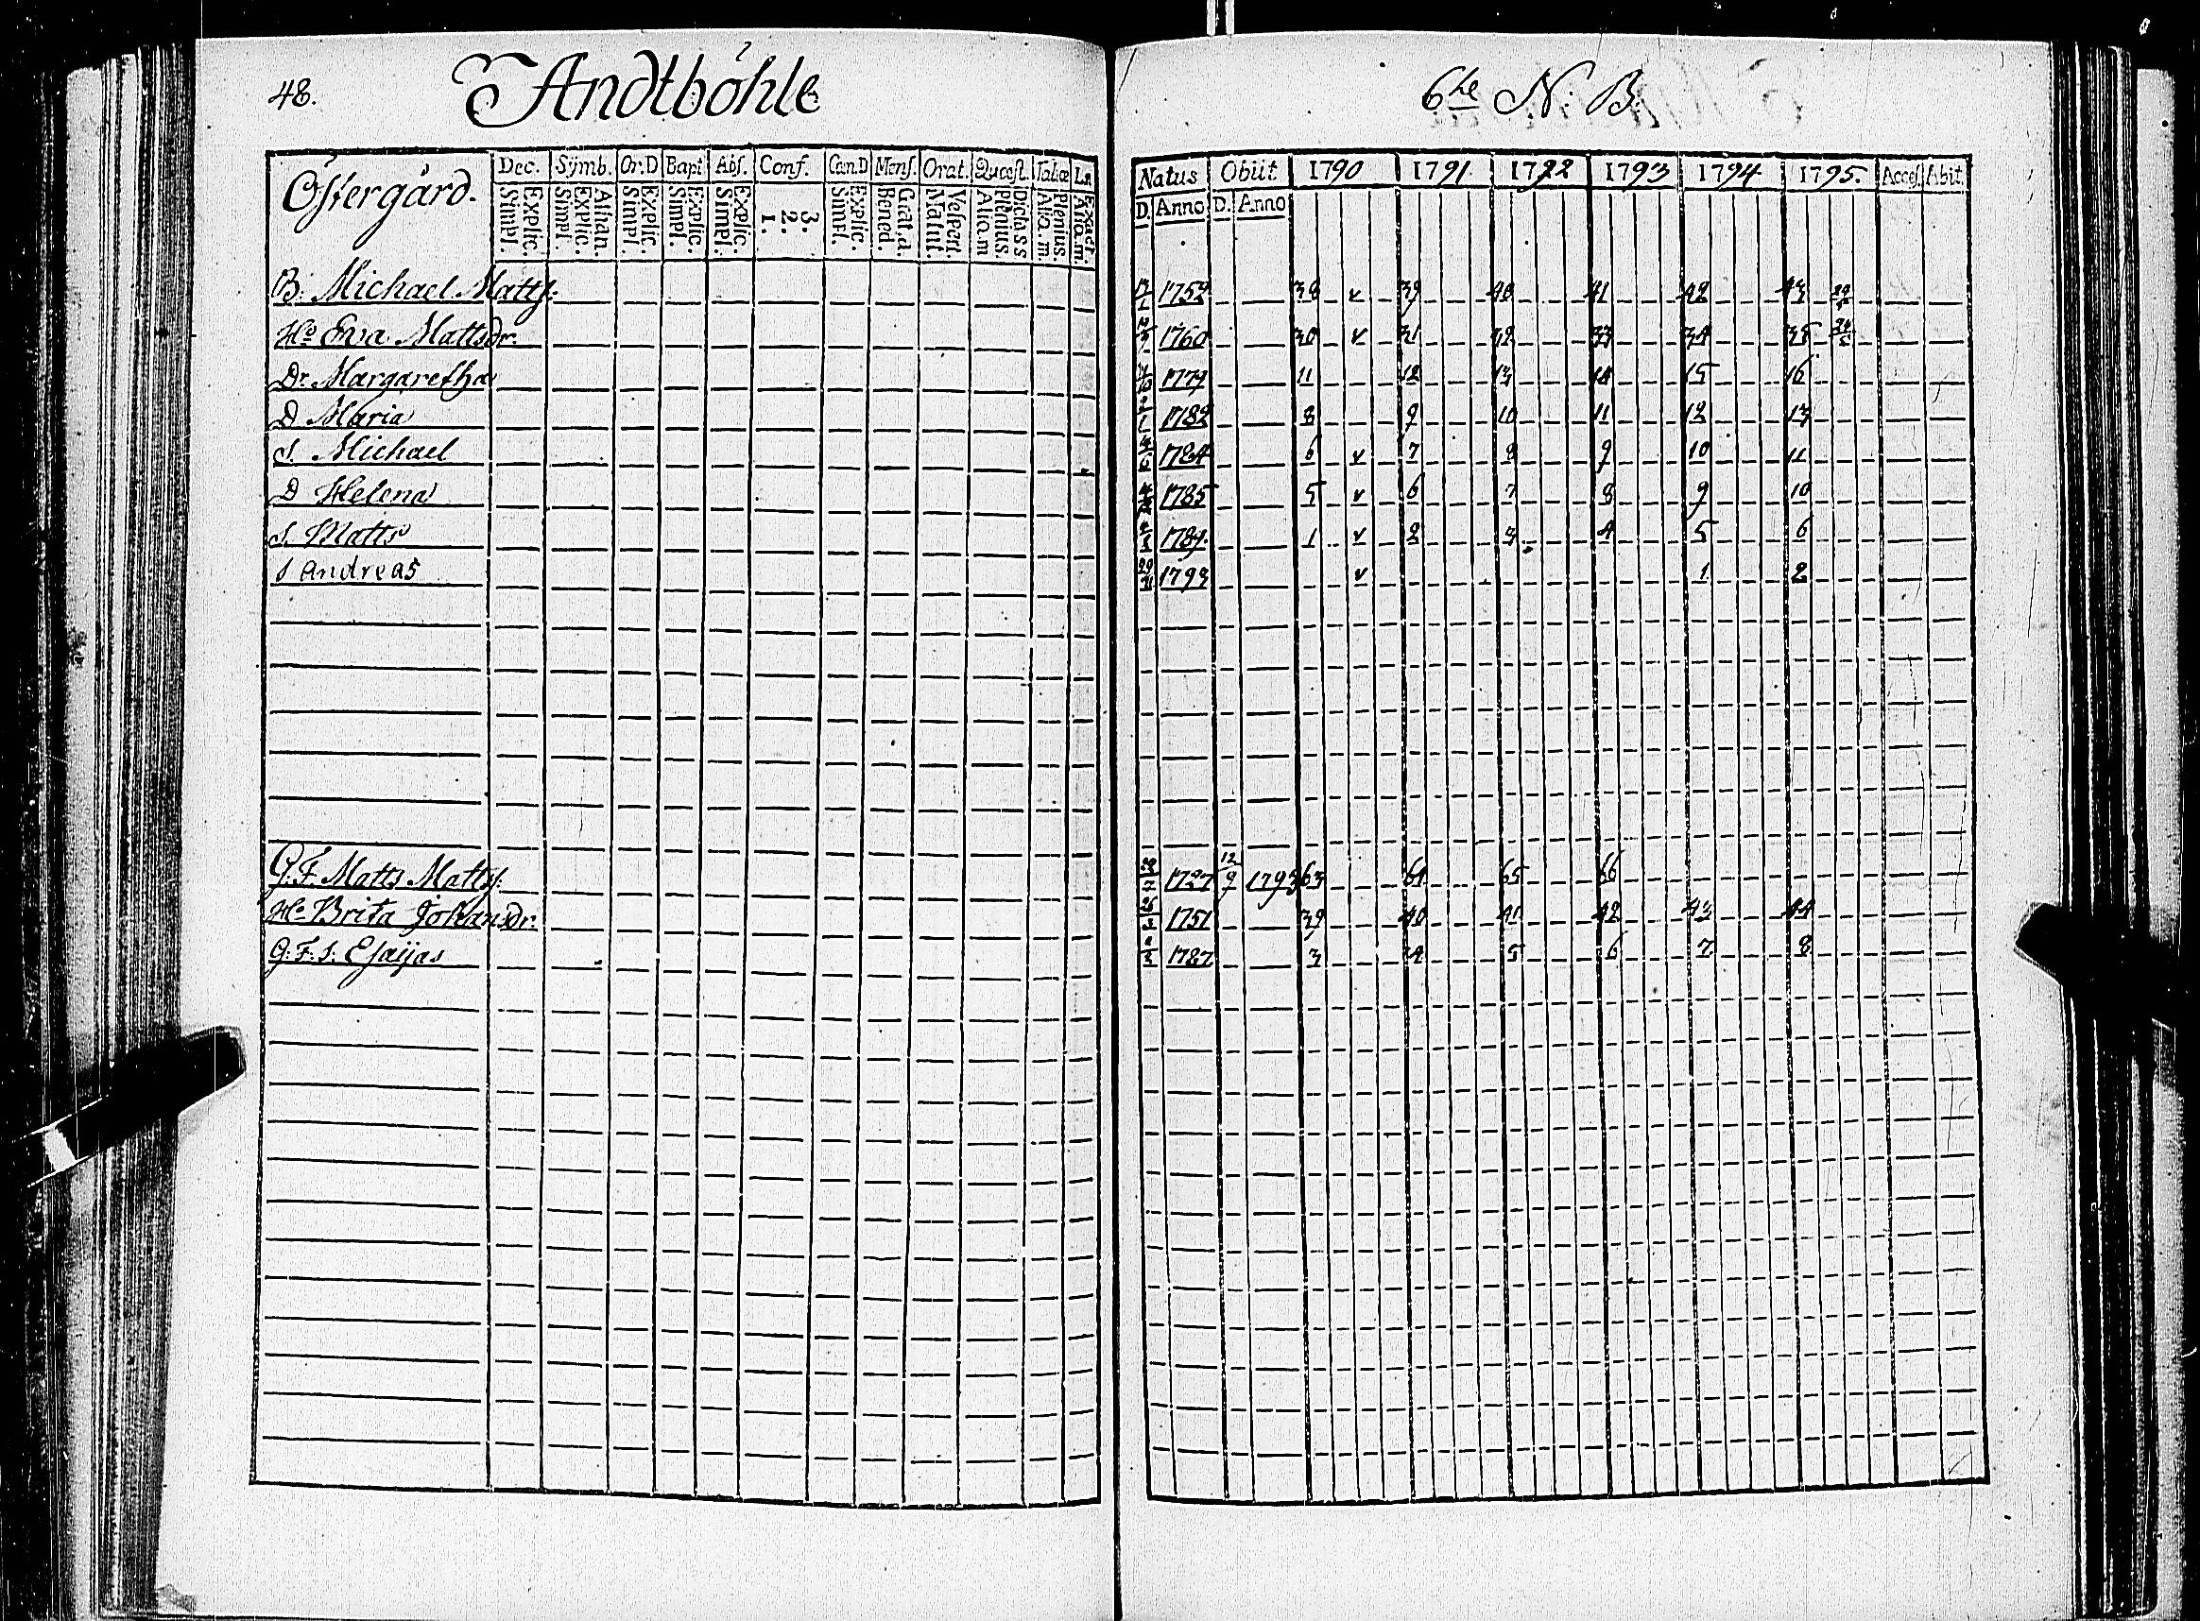 48. Andtböhle
Östergård. Dec. Symb. Or.D Bapt Abs. Conf. Cœn.D Mens. Orat. Quæst. Tabæ
Explic. Simpl. Athan. Explic. Simpl. Explic. Simpl. Explic. Simpl. Explic. Simpl. 3. 2. 1. Explic. Simpl. Grat.a. Bened. Vespert. Matut. Dicta SS Plenius. Aliq.m Plenius Aliq.m Exact. Aliq.m
B. Michael Matts:
H. Ewa Mattsdr.
Dr. Margaretha
D Maria
S. Michael
D Helena
S. Matts
S Andreas
G.F. Matts Mattss:
H. Brita Johansdr.
G.F.S. Esaijas
6te N. B.
Natus Obiit 1790 1791 1792 1793 1794 1795. Acces. Abit.
D. Anno D. Anno
1752 38 v 39 40 41 42 43
1760 30 v 31 32 33 34 35
1779 11 12 13 14 15 16
1782 8 9 10 11 12 13
1784 6 v 7 8 9 10 11
1785 5 v 6 7 8 9 10
1789. 1 v 2 3 4 5 6
1793 v 1 2
1727 12/9 1793 63 64 65 66
1751 39 40 41 42 43 44
1787 3 4 5 6 7 8